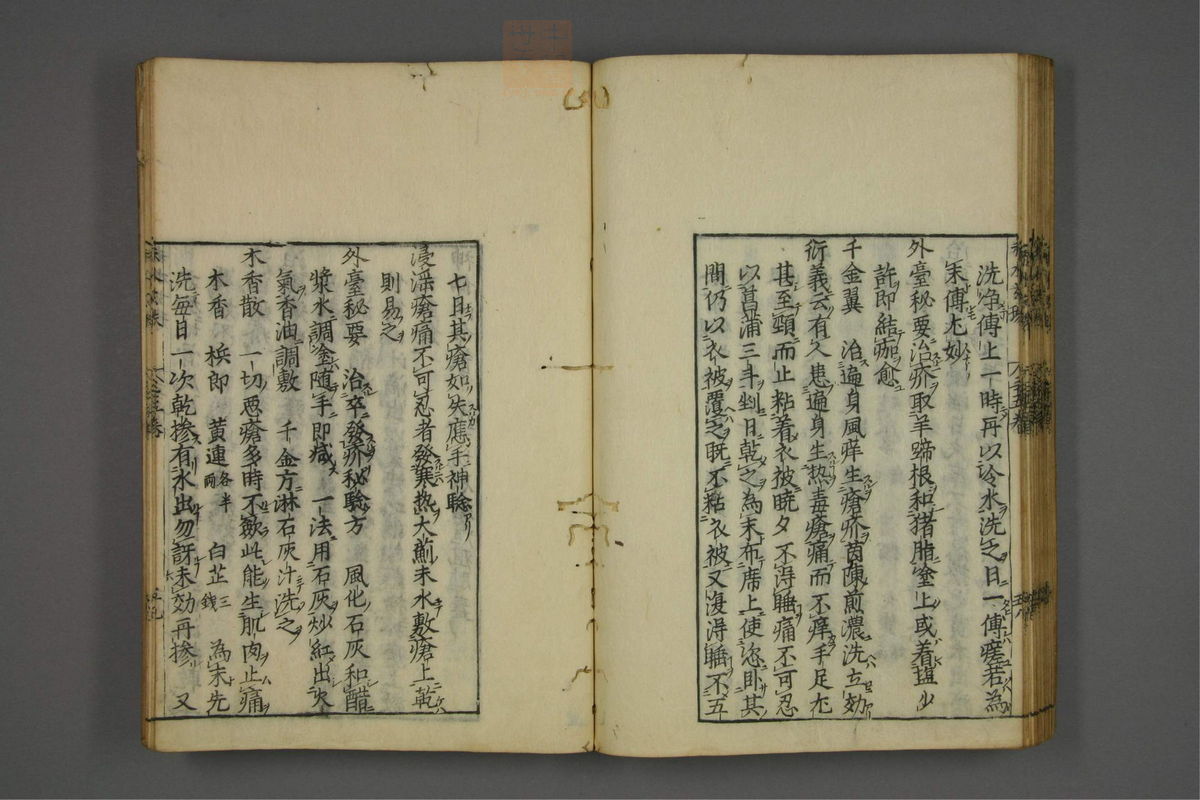 洗净傅上一時再以冷水洗之日一傅瘥若為
末傅尤妙
外臺秘要治疥取羊蹄根和猪脂塗上或着塩少
許即結痂愈
千金翼 治遍身風痒生瘡疥茵陳煎濃洗立効
衍義云有人患遍身生热毒瘡痛而不痒手足尤
甚至頸而止粘着衣被暁夕不淂睡痛不可忍
以菖蒲三斗剉日乾之為末布席上使恣卧其
間仍以衣被覆之旣不粘衣被又淂睡不五
七日其瘡如失應手神驗
浸淫瘡痛不可忍者發寒热大薊末水敷瘡上乾
則易之
外臺秘要 治卒發疥秘驗方 風化石灰和醋
漿水調塗随手即减 一法用石灰炒紅出火
氣香油調敷 千金方淋石灰汁洗之
木香散 一切恶瘡多時不歛此能生肌肉止痛
木香 梹郎 黄連各半兩 白芷三錢 為末先
洗每日一次乾掺有水出勿訝未効再掺 又